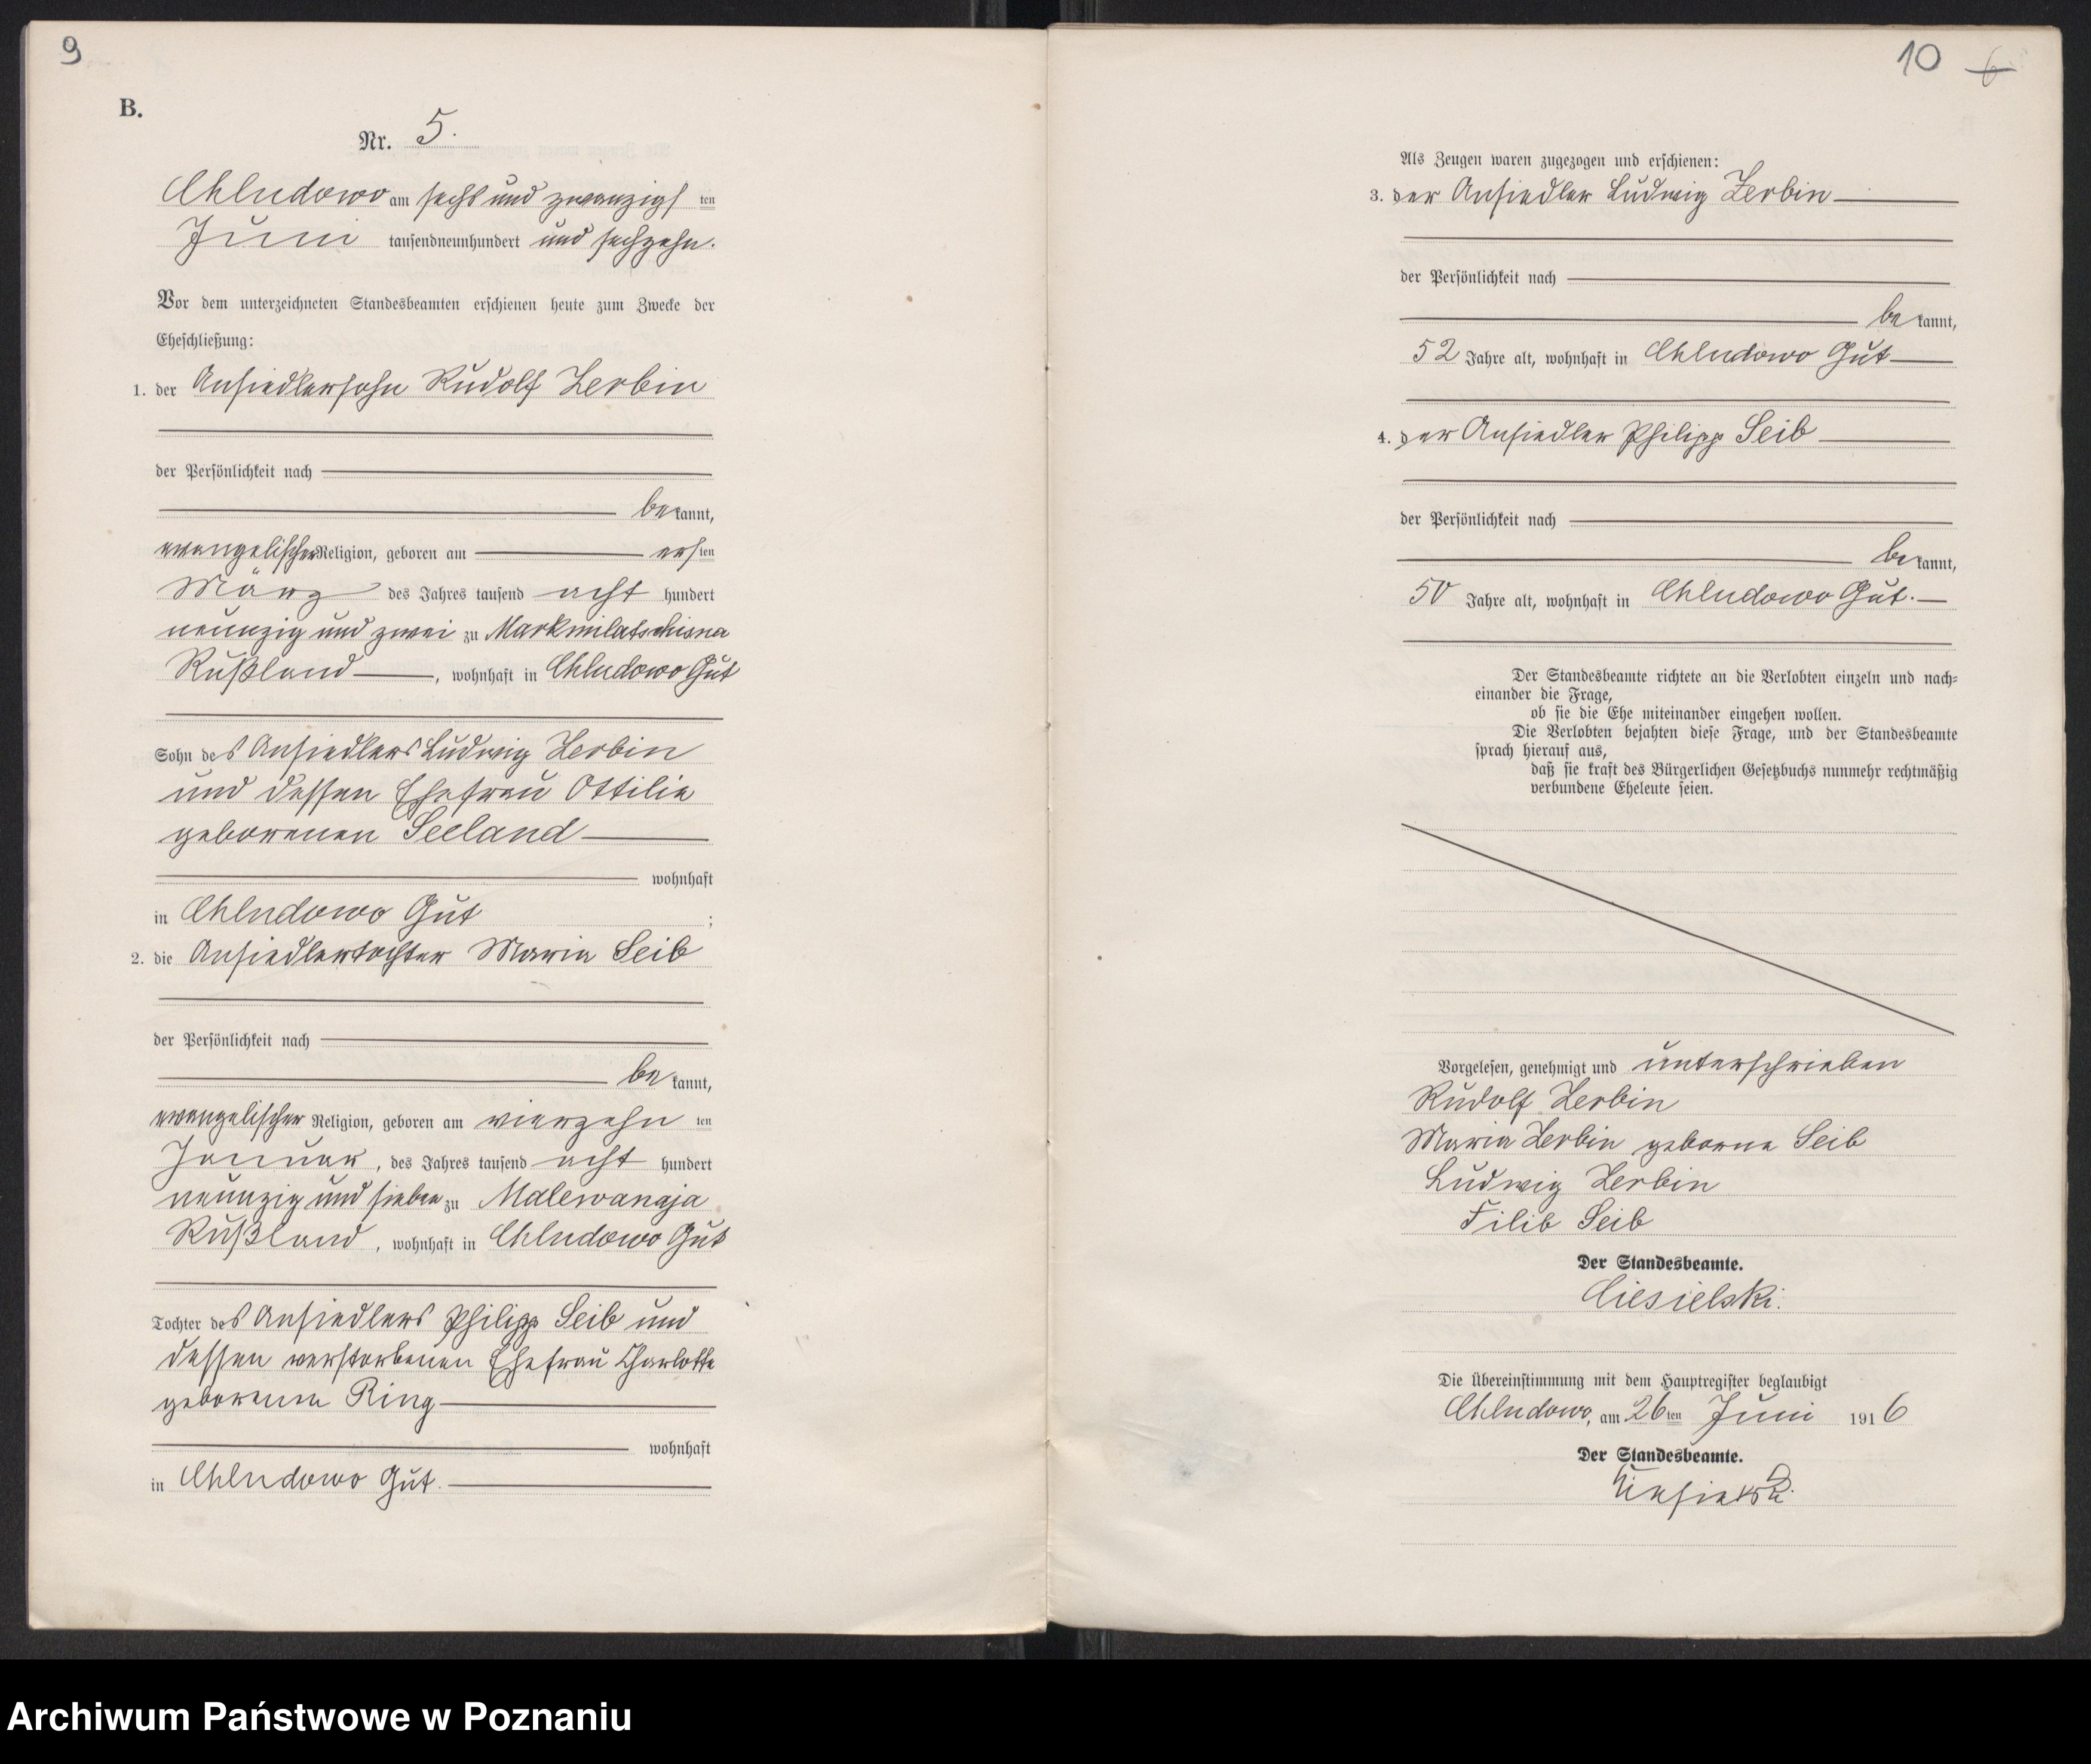 9
B.
Nr. 5.
Chludowo am sechs und zwanzigsten
Juni tausendneunhundert und sechzehn.
Vor dem unterzeichneten Standesbeamten erschienen heute zum Zwecke der
Eheschließung:
1. der Ansiedlersohn Rudolf Zerbin
der Persönlichkeit nach
bekannt,
evangelischer Religion, geboren am ersten
März des Jahres tausend acht hundert
neunzig und zwei zu Markmilatschisna
Rußland, wohnhaft in Chludowo Gut
Sohn des Ansiedlers Ludwig Zerbin
und dessen Ehefrau Ottilie
geborenen Seeland
wohnhaft
in Chludowo Gut ;
2. die Ansiedlertochter Maria Seib
der Persönlichkeit nach
bekannt,
evangelischer Religion, geboren am vierzehn ten
Januar, des Jahres tausend acht hundert
neunzig und sieben zu Malewanaja
Rußland, wohnhaft in Chludowo Gut
Tochter des Ansiedlers Philipp Seib und
dessen verstorbenen Ehefrau Charlotte
geborenen Ring
wohnhaft
in Chludowo Gut.
10 6
Als Zeugen waren zugezogen und erschienen:
3. der Ansiedler Ludwig Zerbin
der Persönlichkeit nach
bekannt,
52 Jahre alt, wohnhaft in Chludowo Gut
4. der Ansiedler Philipp Seib
der Persönlichkeit nach
bekannt,
50 Jahre alt, wohnhaft in Chludowo Gut.
Der Standesbeamte richtete an die Verlobten einzeln und nach-
einander die Frage,
ob sie die Ehe miteinander eingehen wollen.
Die Verlobten bejahten diese Frage, und der Standesbeamte
sprach hierauf aus,
daß sie kraft des Bürgerlichen Gesetzbuchs nunmehr rechtmäßig
verbundene Eheleute seien.
Vorgelesen, genehmigt und unterschrieben
Rudolf Zerbin
Maria Zerbin geborne Seib
Ludwig Zerbin
Filib Seib
Der Standesbeamte.
Ciesielski.
Die Übereinstimmung mit dem Hauptregister beglaubigt
Chludowo, am 26ten Juni 1916
Der Standesbeamte.
Ciesielski
Archiwum Państwowe w Poznaniu